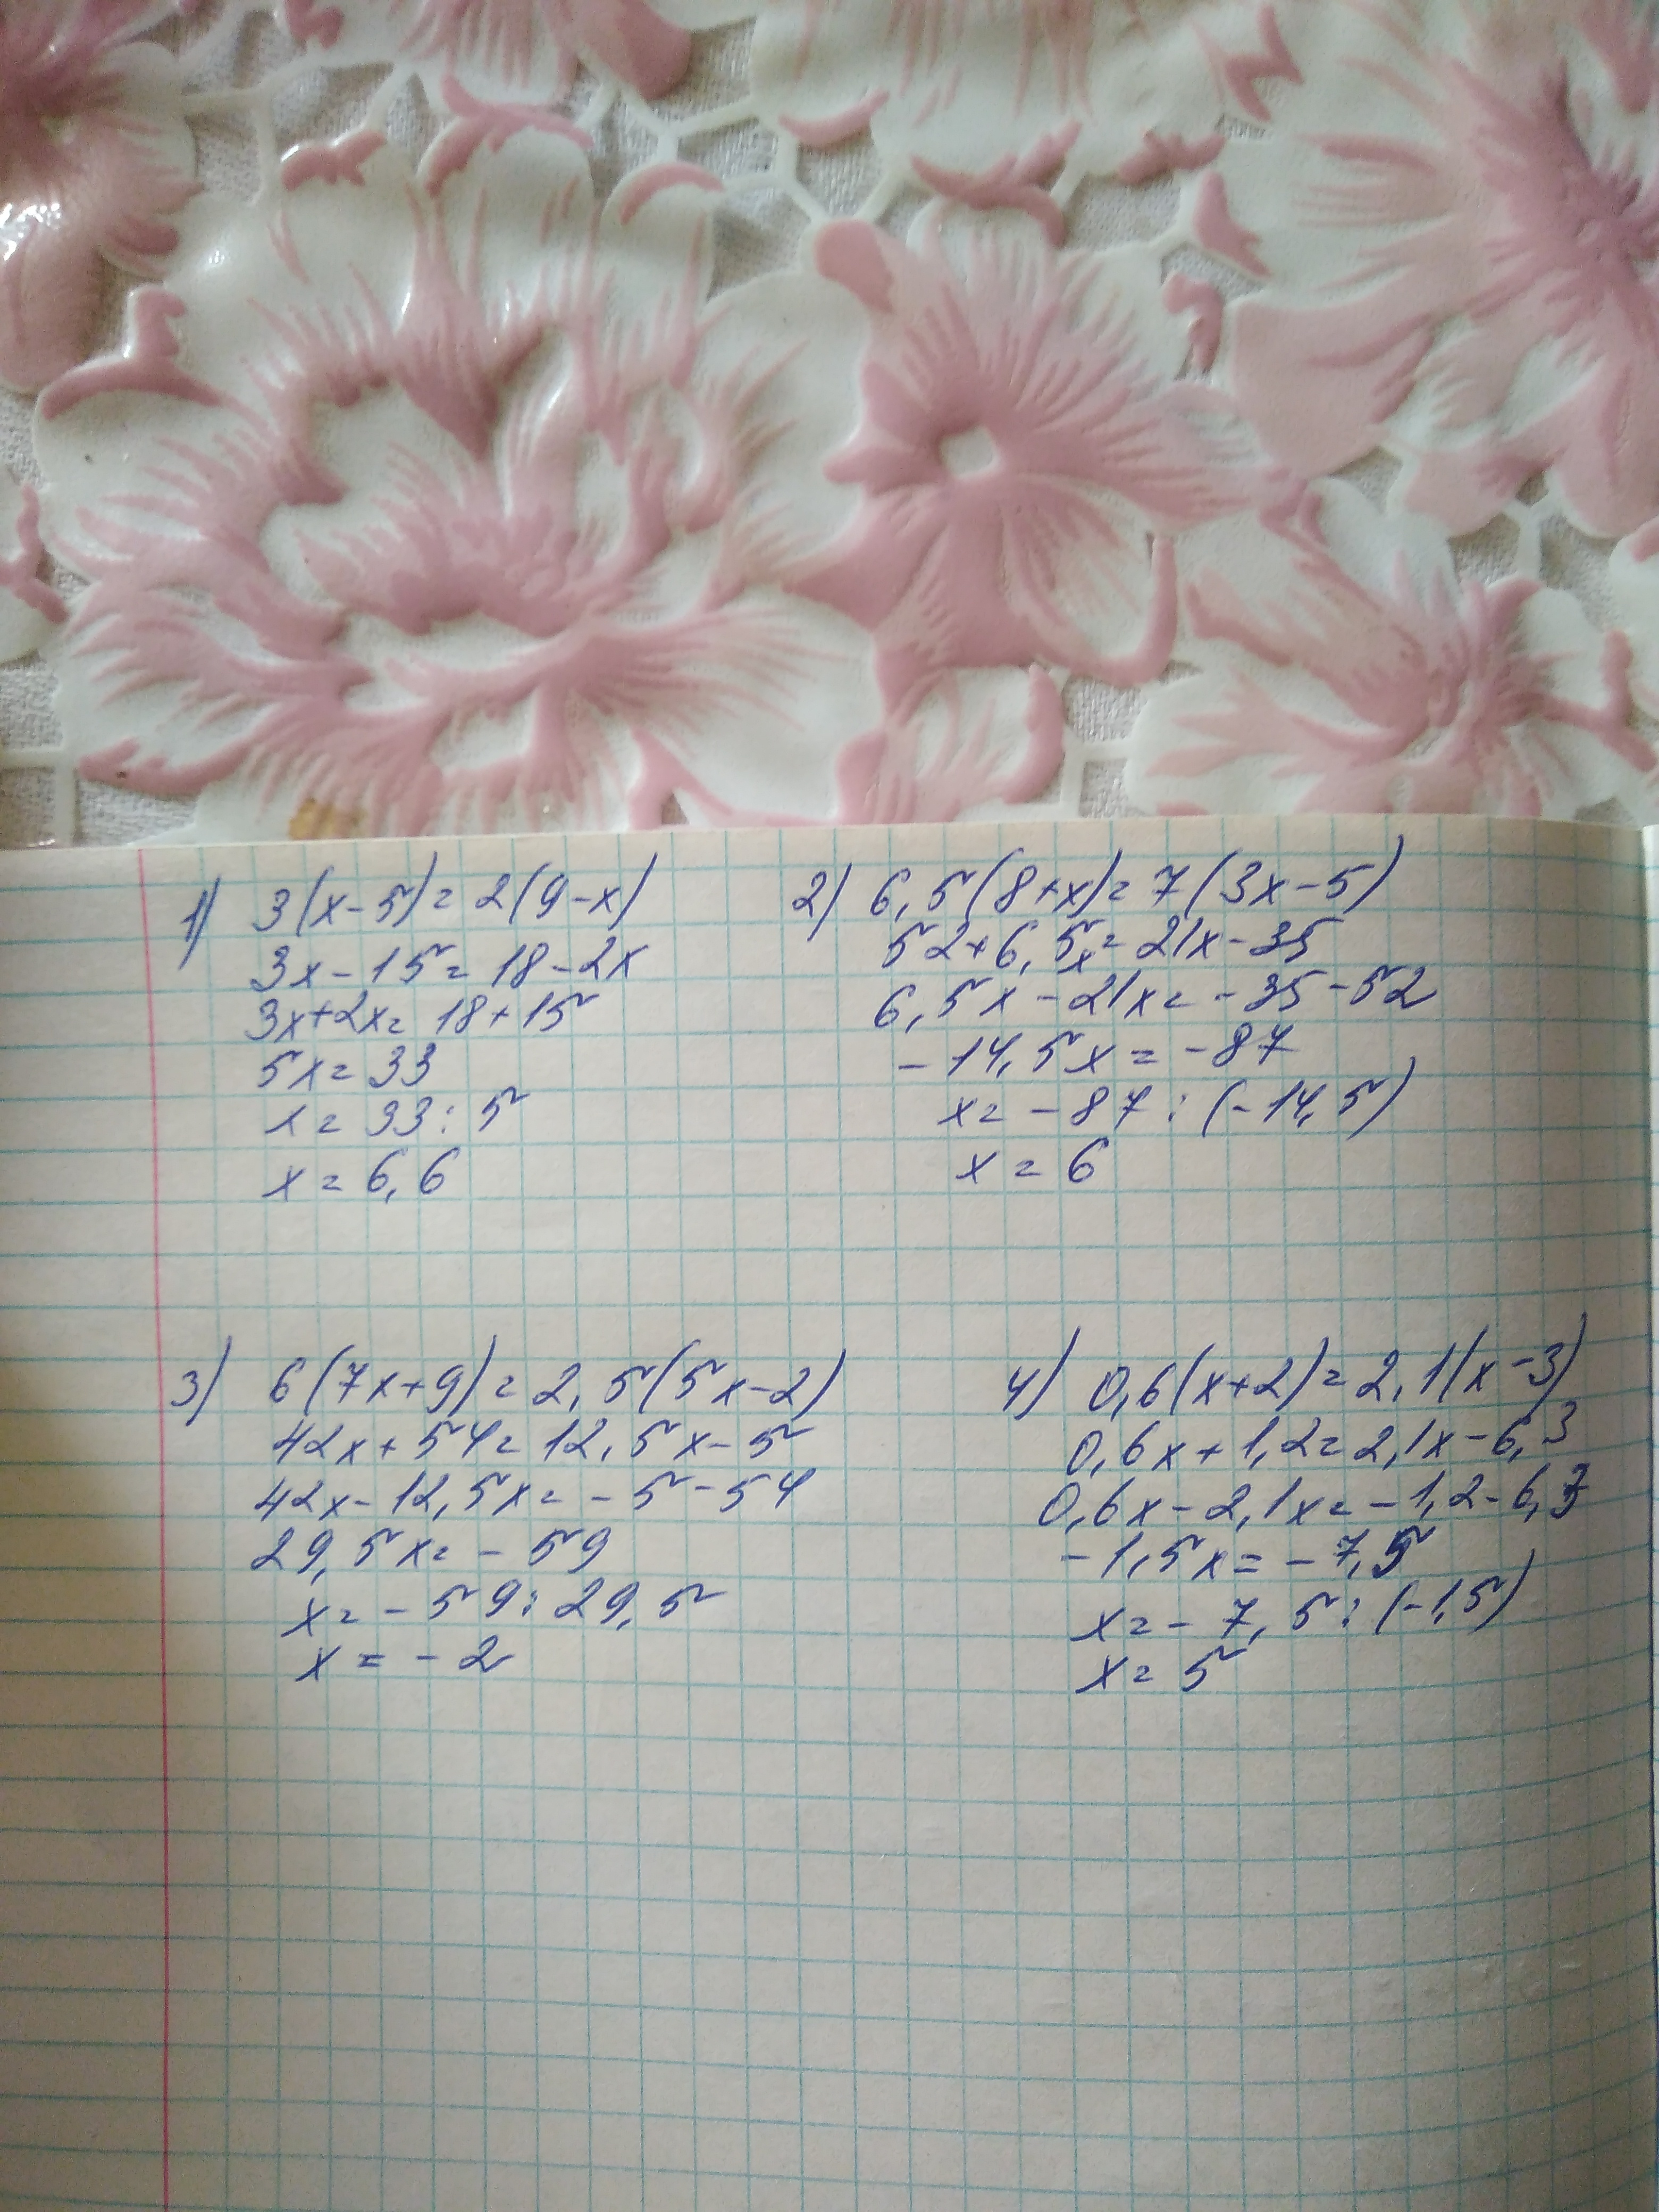 1) 3(x-5)=2(9-x)
3x-15=18-2x
3x+2x=18+15
5x=33
x=33:5
x=6,6
2) 6,5(8+x)=7(3x-5)
52+6,5x=21x-35
6,5x-21x=-35-52
-14,5x=-87
x=-87:(-14,5)
x=6
3) 6(7x+9)=2,5(5x-2)
42x+54=12,5x-5
42x-12,5x=-5-54
29,5x=-59
x=-59:29,5
x=-2
4) 0,6(x+2)=2,1(x-3)
0,6x+1,2=2,1x-6,3
0,6x-2,1x=-1,2-6,3
-1,5x=-7,5
x=-7,5:(-1,5)
x=5